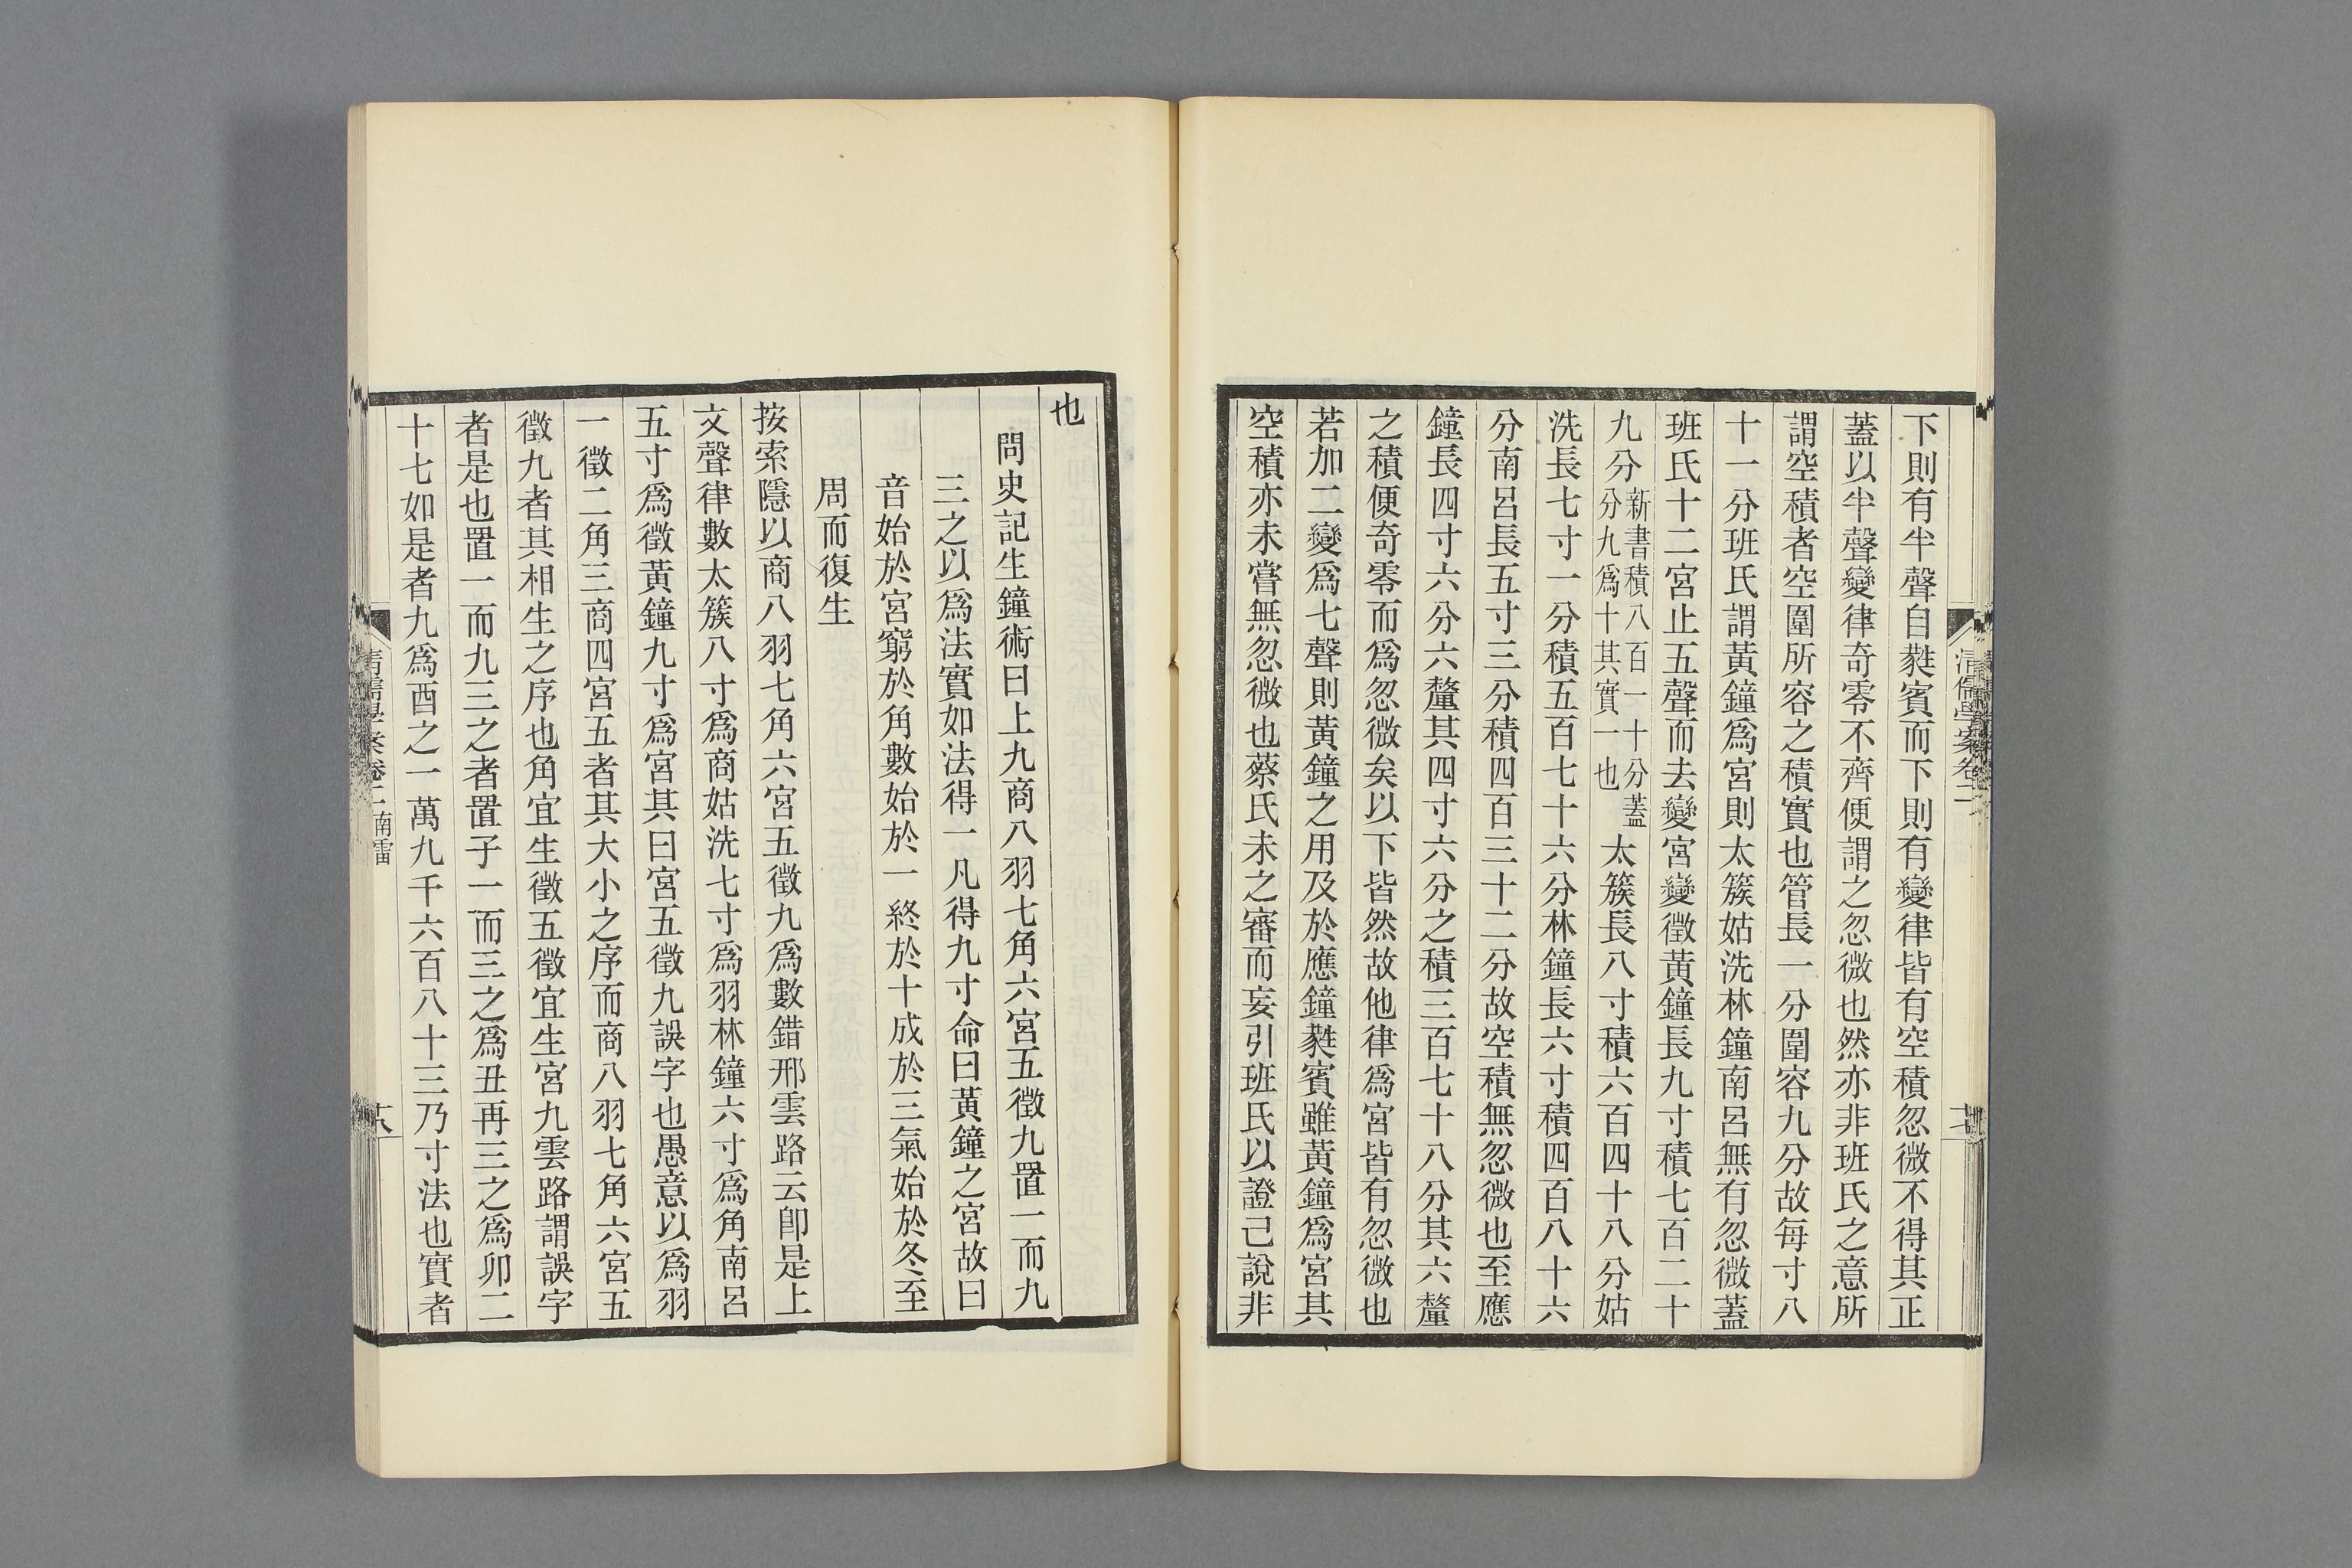 下則有半聲自蕤賓而下則有變律皆有空積忽微不得其正
蓋以半聲變律奇零不齊便謂之忽微也然亦非班氏之意所
謂空積者空圍所容之積實也管長一分圍容九分故每寸八
十一分班氏謂黃鐘爲宮則太簇姑洗林鐘南呂無有忽微蓋
班氏十二宮止五聲而去變宮變徵黃鐘長九寸積七百二十
九分新書積八百一十分蓋分九爲十其實一也太簇長八寸積六百四十八分姑
洗長七寸一分積五百七十六分林鐘長六寸積四百八十六
分南呂長五寸三分積四百三十二分故空積無忽微也至應
鐘長四寸六分六釐其四寸六分之積三百七十八分其六釐
之積便奇零而爲忽微矣以下皆然故他律爲宮皆有忽微也
若加二變爲七聲則黃鐘之用及於應鐘蕤賓雖黃鐘爲宮其
空積亦未嘗無忽微也蔡氏未之審而妄引班氏以證己說非
清儒學案卷二
也
問史記生鐘術曰上九商八羽七角六宮五徵九置一而九
三之以爲法實如法得一凡得九寸命曰黃鐘之宮故曰
音始於宮窮於角數始於一終於十成於三氣始於冬至
周而復生
按索隱以商八羽七角六宮五徵九爲數錯邢雲路云卽是上
文聲律數太簇八寸爲商姑洗七寸爲羽林鐘六寸爲角南呂
五寸爲徵黃鐘九寸爲宮其曰宮五徵九誤字也愚意以爲羽
一徵二角三商四宮五者其大小之序而商八羽七角六宮五
徵九者其相生之序也角宜生徵五徵宜生宮九雲路謂誤字
者是也置一而九三之者置子一而三之爲丑再三之爲卯二
十七如是者九爲酉之一萬九千六百八十三乃寸法也實者
清儒學案卷二 南雷
十八